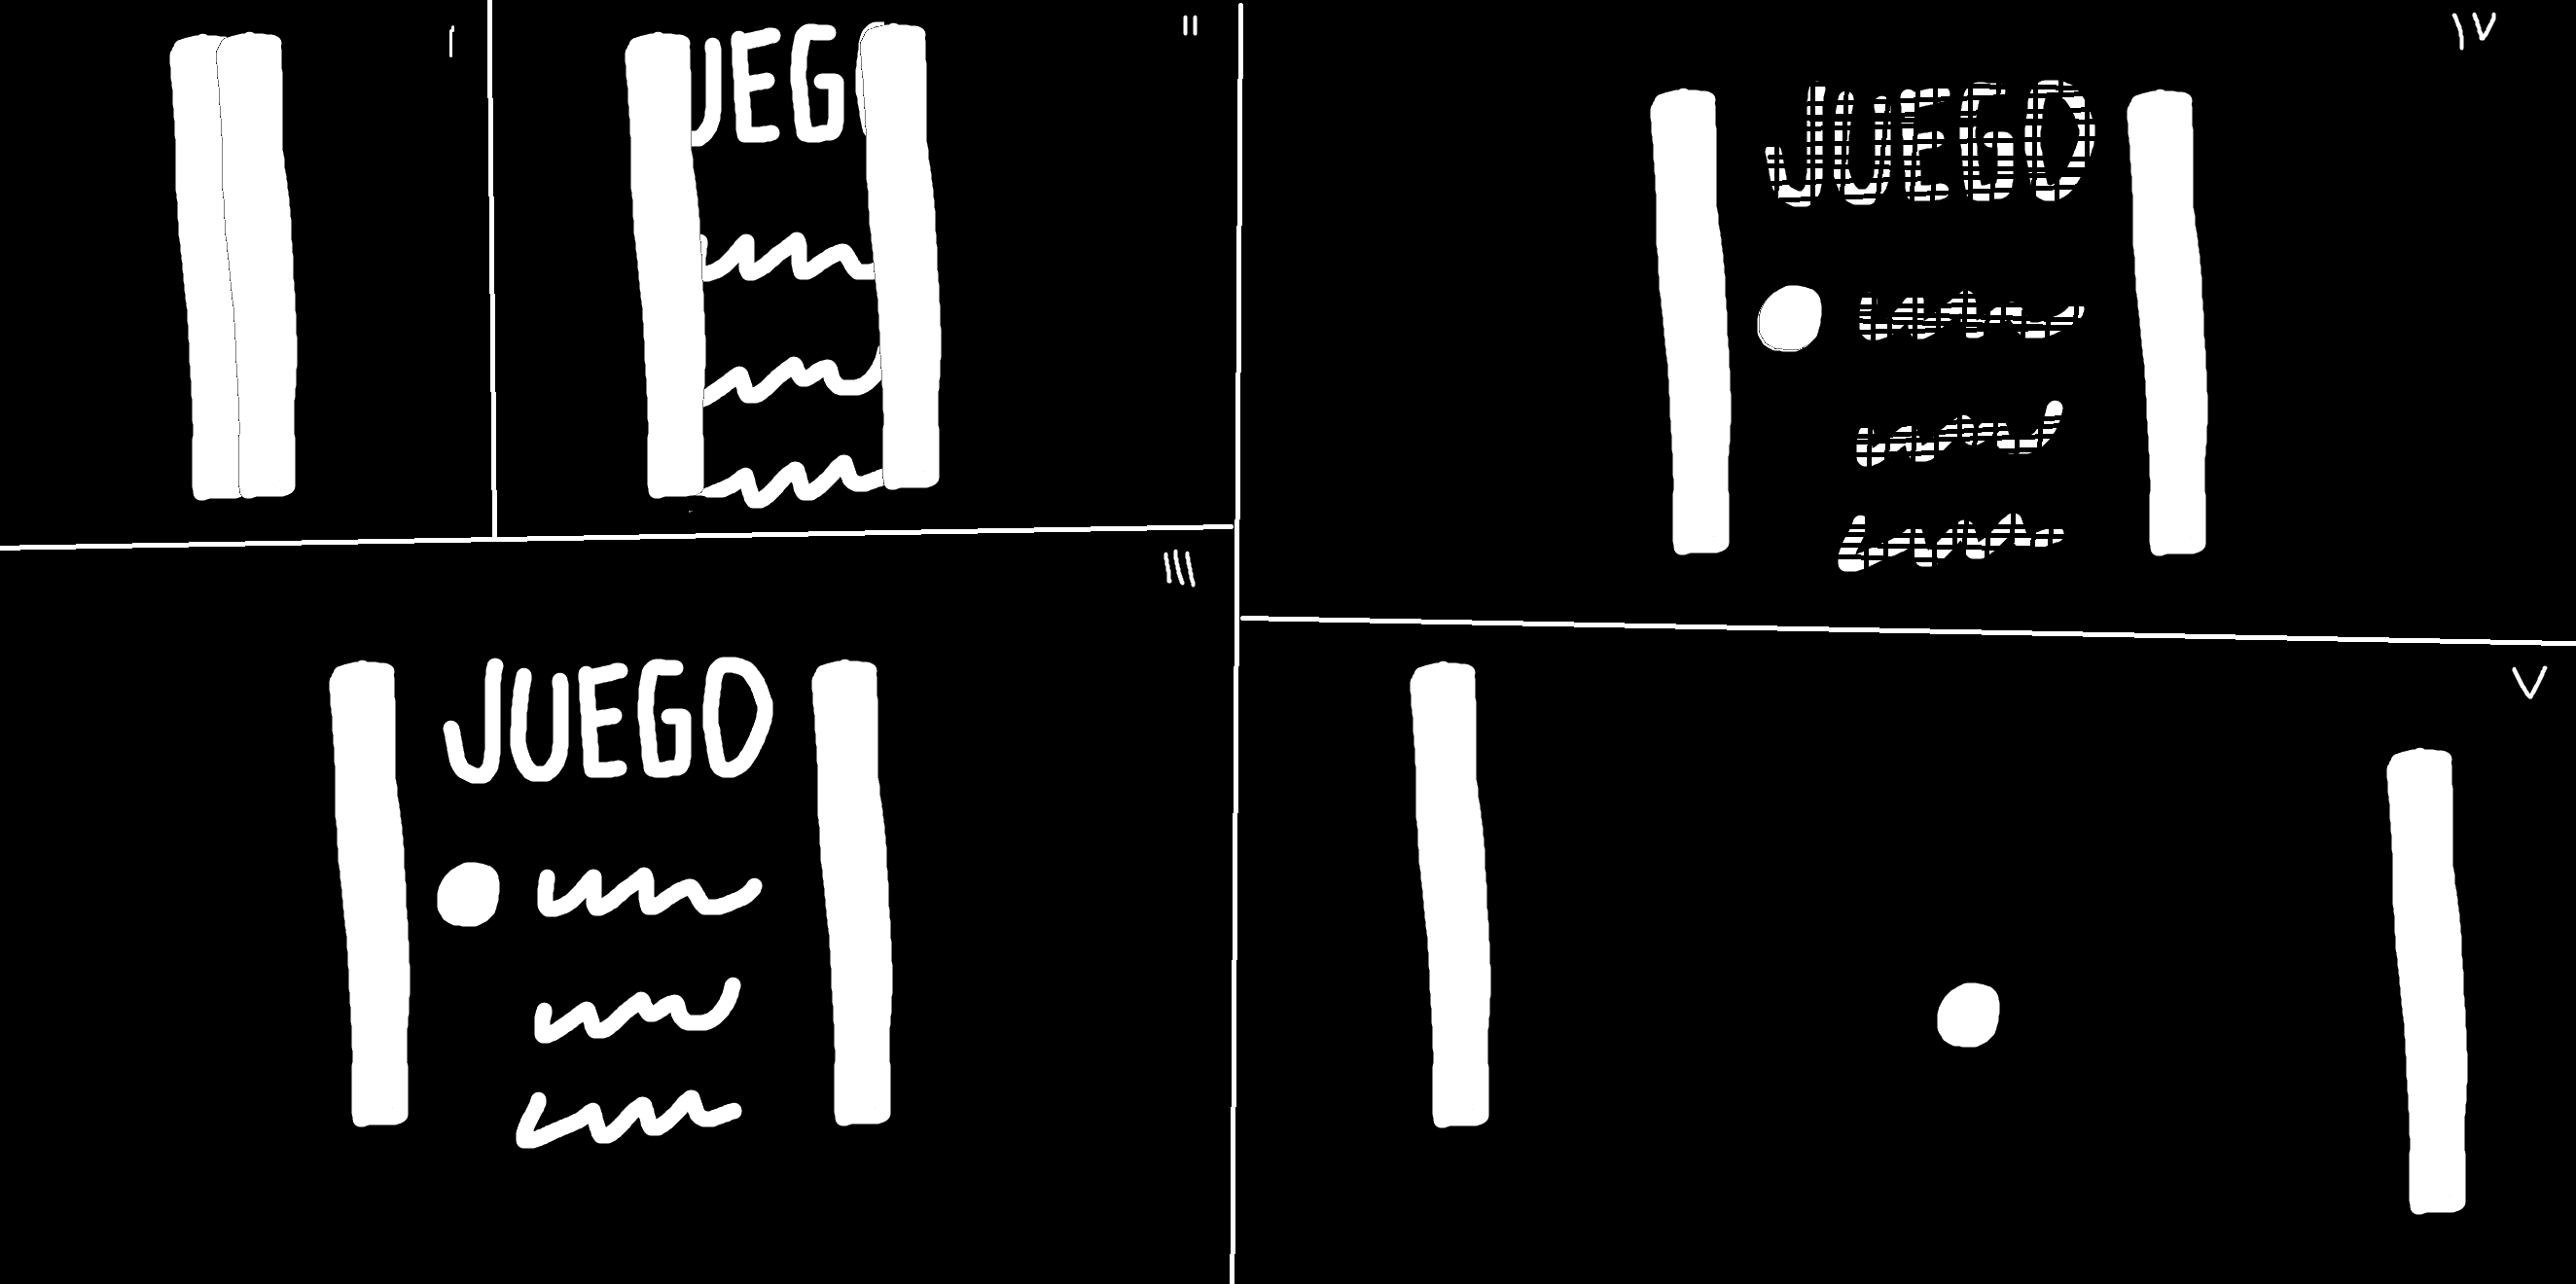 I
II
UEG
III
JUEGO
IV
JUEGO
V